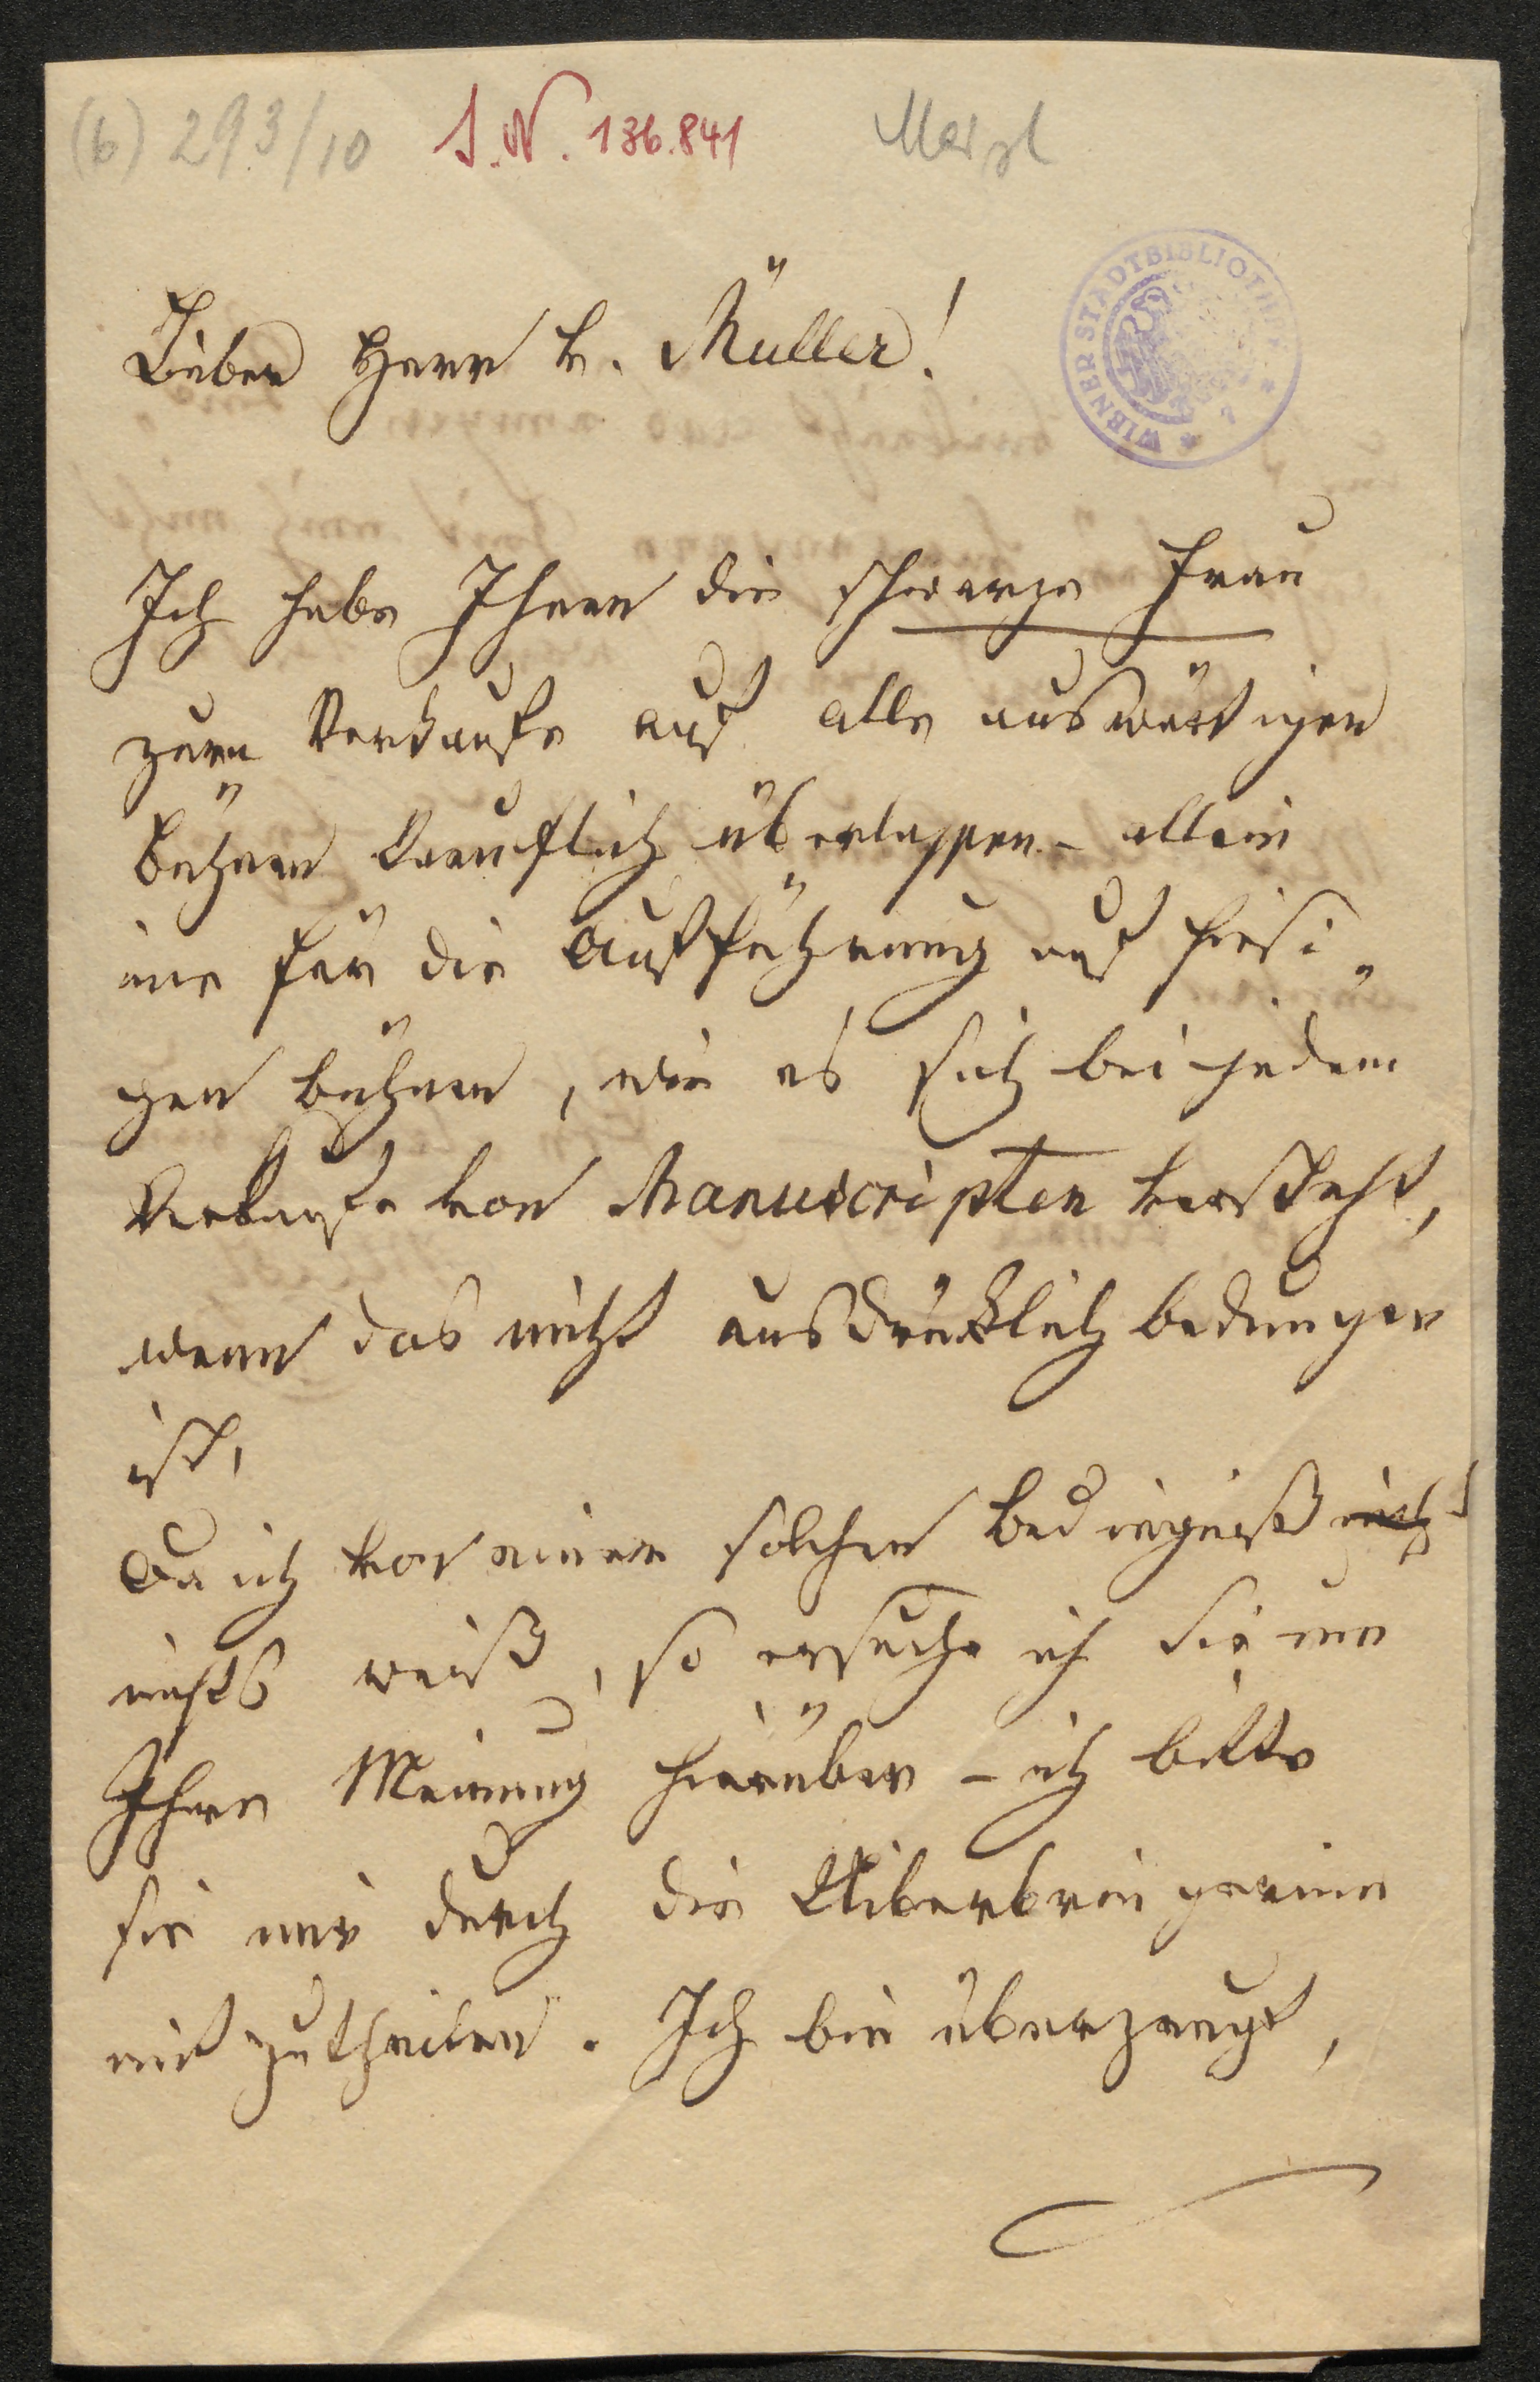 (b) 293/10 I. N. 136.841 Meisl
WIENER STADTBIBLIOTHEK
7
Lieber Herr v. Müller!
Ich habe Ihnen die schwarze Frau
zum Verkaufe auf alle auswärtigen
Bühnen käuflich überlassen – allein
nie für die Aufführung auf hiesi-
gen Bühnen, wie es sich bei jedem
Verkaufe von Manuscripten versteht,
wenn das nicht ausdrücklich bedungen
ist,
Da ich von einer solchen Bedingniß nicht
nichts weiß, so ersuche ich Sie um
Ihre Meinung hierüber – ich bitte
sie mir durch die Uiberbringerinn
mitzutheilen. Ich bin überzeugt,